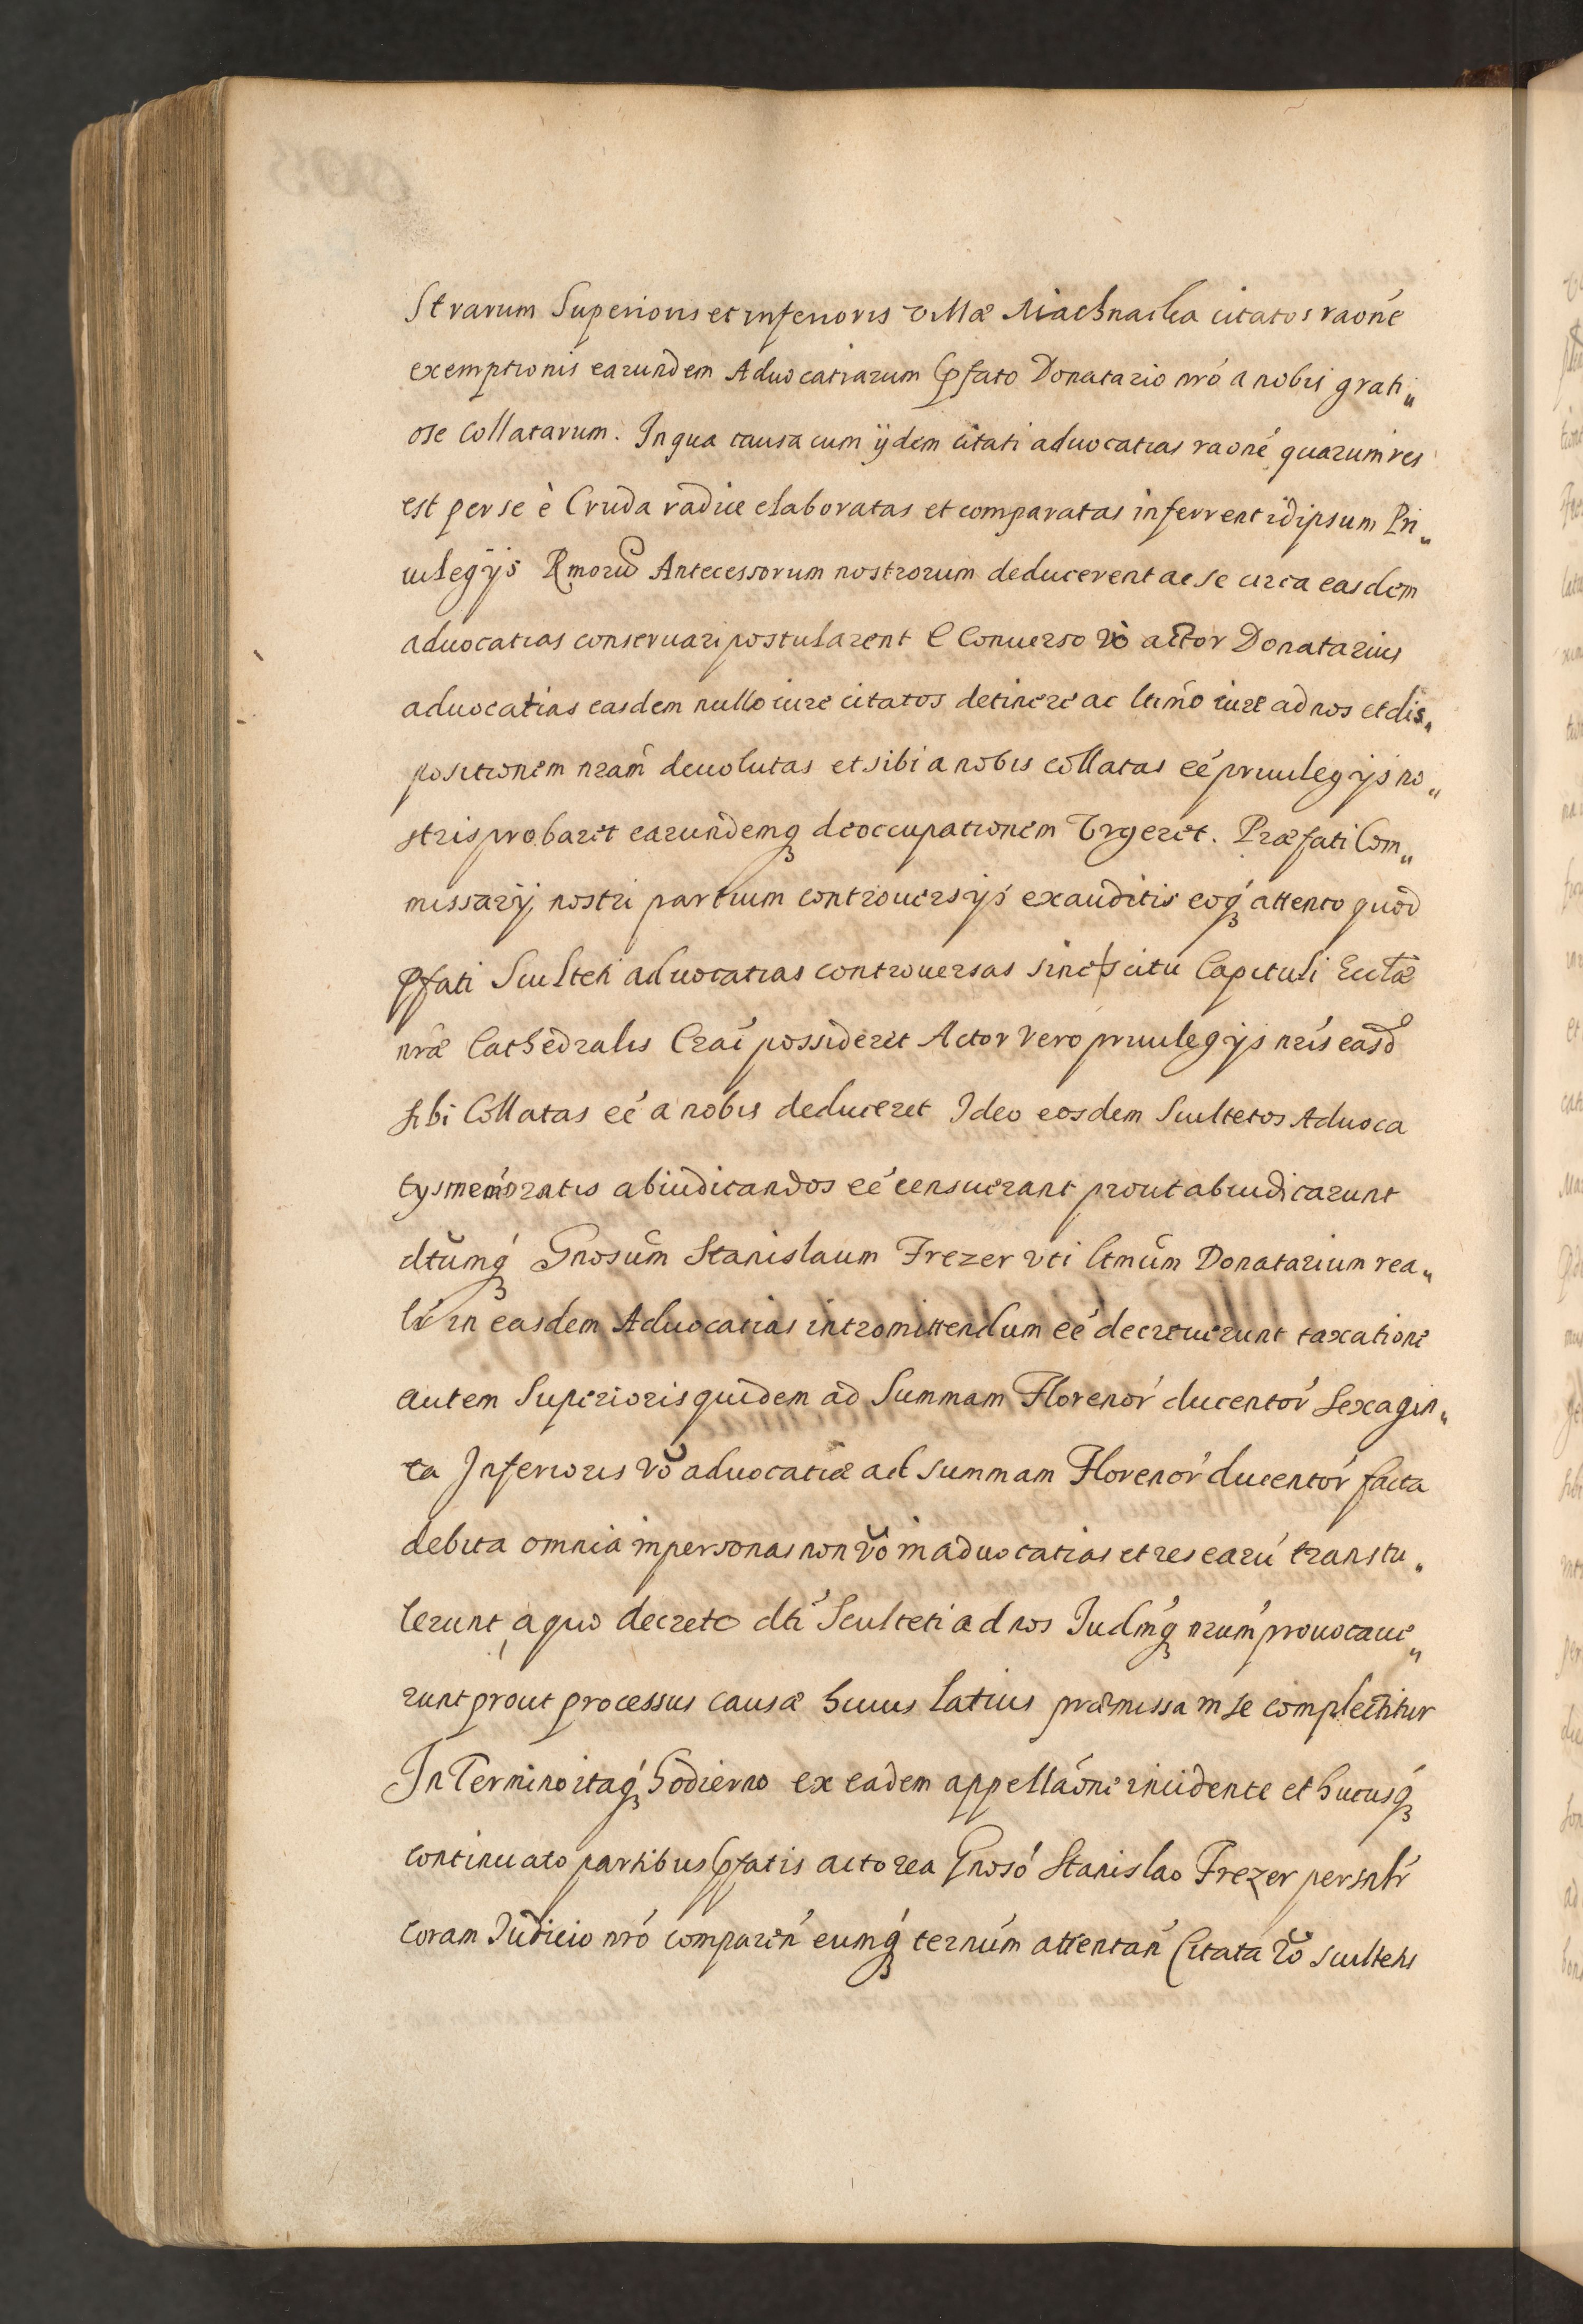 strarum Superioris et inferioris villæ Miachnacka citatos raóne
exemptionis earundem Aduocatiarum Pfato Donatario nró a nobis grati„
ose collatarum. In qua causa cum ijdem citati aduocatias raoné quarum res
est per se è Cruda radice elaboratas et comparatas inferrent idipsum Pri„
uilegijs Rmorũ Antecessorum nostrorum deducerent ac se circa easdem
aduocatias conseruari postularent E Conuerso vò actor Donatarius
aduocatias easdem nullo iure citatos detinere ac ltimo iure ad nos et dis„
positionem nram deuolutas et sibi a nobis collatas eé priuilegijs no„
stris probaret earundemq deoccupationem Vrgeret. Præfati Com„
missarij nostri partium controuersijs exauditis eoq attento quod
Pfati Sculteti aduocatias controuersas sine scitu Capituli Ecctæ
nræ Cathedralis Crac possiderent Actor vero priuilegijs nris easd
sibi Collatas eé a nobis deduceret Ideo eosdem Scultetos Aduoca
tijs memoratis abiudicandos eé censuerant prout abiudicarunt
dtumq Gnosum Stanislaum Frezer vti ltmum Donatarium rea„
lr in easdem Aduocatias intromittendum eé decreuerunt taxatione
autem Superioris quidem ad Summam Florenor ducentor Sexagin„
ta Inferioris vò aduocatiæ ad summam Florenor ducentor facta
debita omnia in personas non vò in aduocatias et res earú transtu„
lerunt, a quo decreto dti Sculteti ad nos Iudmq nrum prouocaue„
runt prout processus causæ huius latius præmissa in se complectitur
In Termino itaq hodierno ex eadem appellaóne incidente et hucusq
continuato partibus Pfatis actorea Gnosó Stanislao Frezer persnlr
coram Iudicio nró comparen eumq ternum attentan Citata vò scultetis